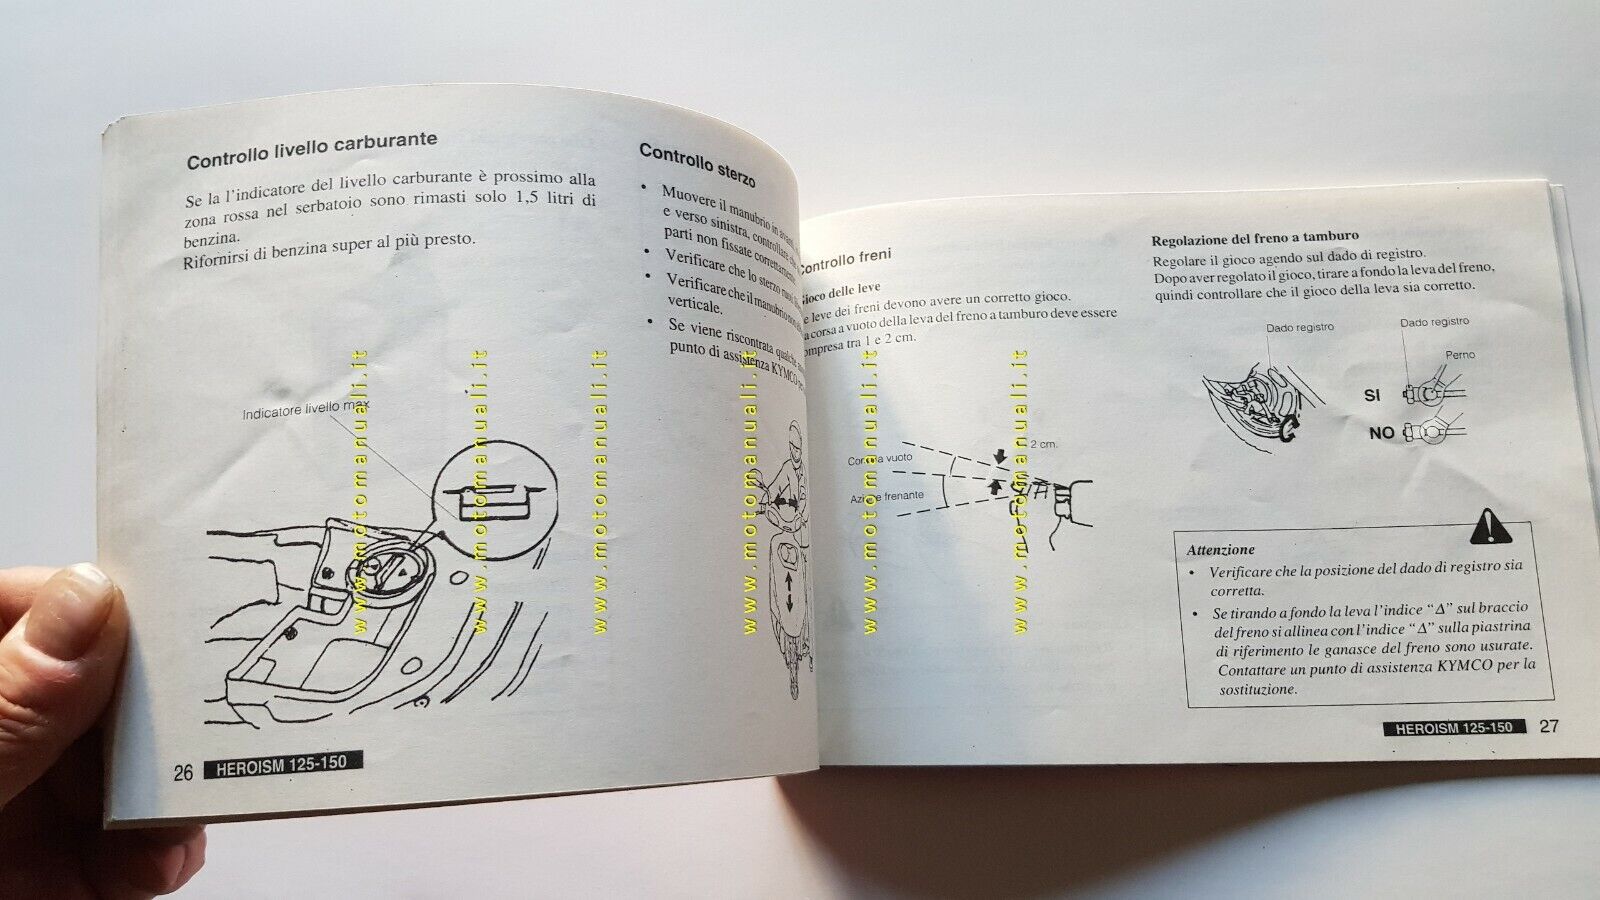 Controllo livello carburante
Se la l'indicatore del livello carburante è prossimo alla
zona rossa nel serbatoio sono rimasti solo 1,5 litri di
benzina.
Rifornirsi di benzina super al più presto.
Indicatore livello max
26 HEROISM 125-150
Controllo sterzo
• Muovere il manubrio in avanti,
e verso sinistra, controllare che
parti non fissate correttamente
• Verificare che lo sterzo
• Verificare che il manubrio
verticale.
• Se viene riscontrata qualche
punto di assistenza KYMCO
Controllo freni
Gioco delle leve
leve dei freni devono avere un corretto gioco.
corsa a vuoto della leva del freno a tamburo deve essere
ompresa tra 1 e 2 cm.
2 cm.
Corsa a vuoto
Azione frenante
Regolazione del freno a tamburo
Regolare il gioco agendo sul dado di registro.
Dopo aver regolato il gioco, tirare a fondo la leva del freno,
quindi controllare che il gioco della leva sia corretto.
Dado registro
Dado registro
Perno
SI
NO
Attenzione
• Verificare che la posizione del dado di registro sia
corretta.
• Se tirando a fondo la leva l'indice “Δ” sul braccio
del freno si allinea con l'indice “Δ” sulla piastrina
di riferimento le ganasce del freno sono usurate.
Contattare un punto di assistenza KYMCO per la
sostituzione.
HEROISM 125-150 27
www.motomanuali.it
www.motomanuali.it
www.motomanuali.it
www.motomanuali.it
www.motomanuali.it
www.motomanuali.it